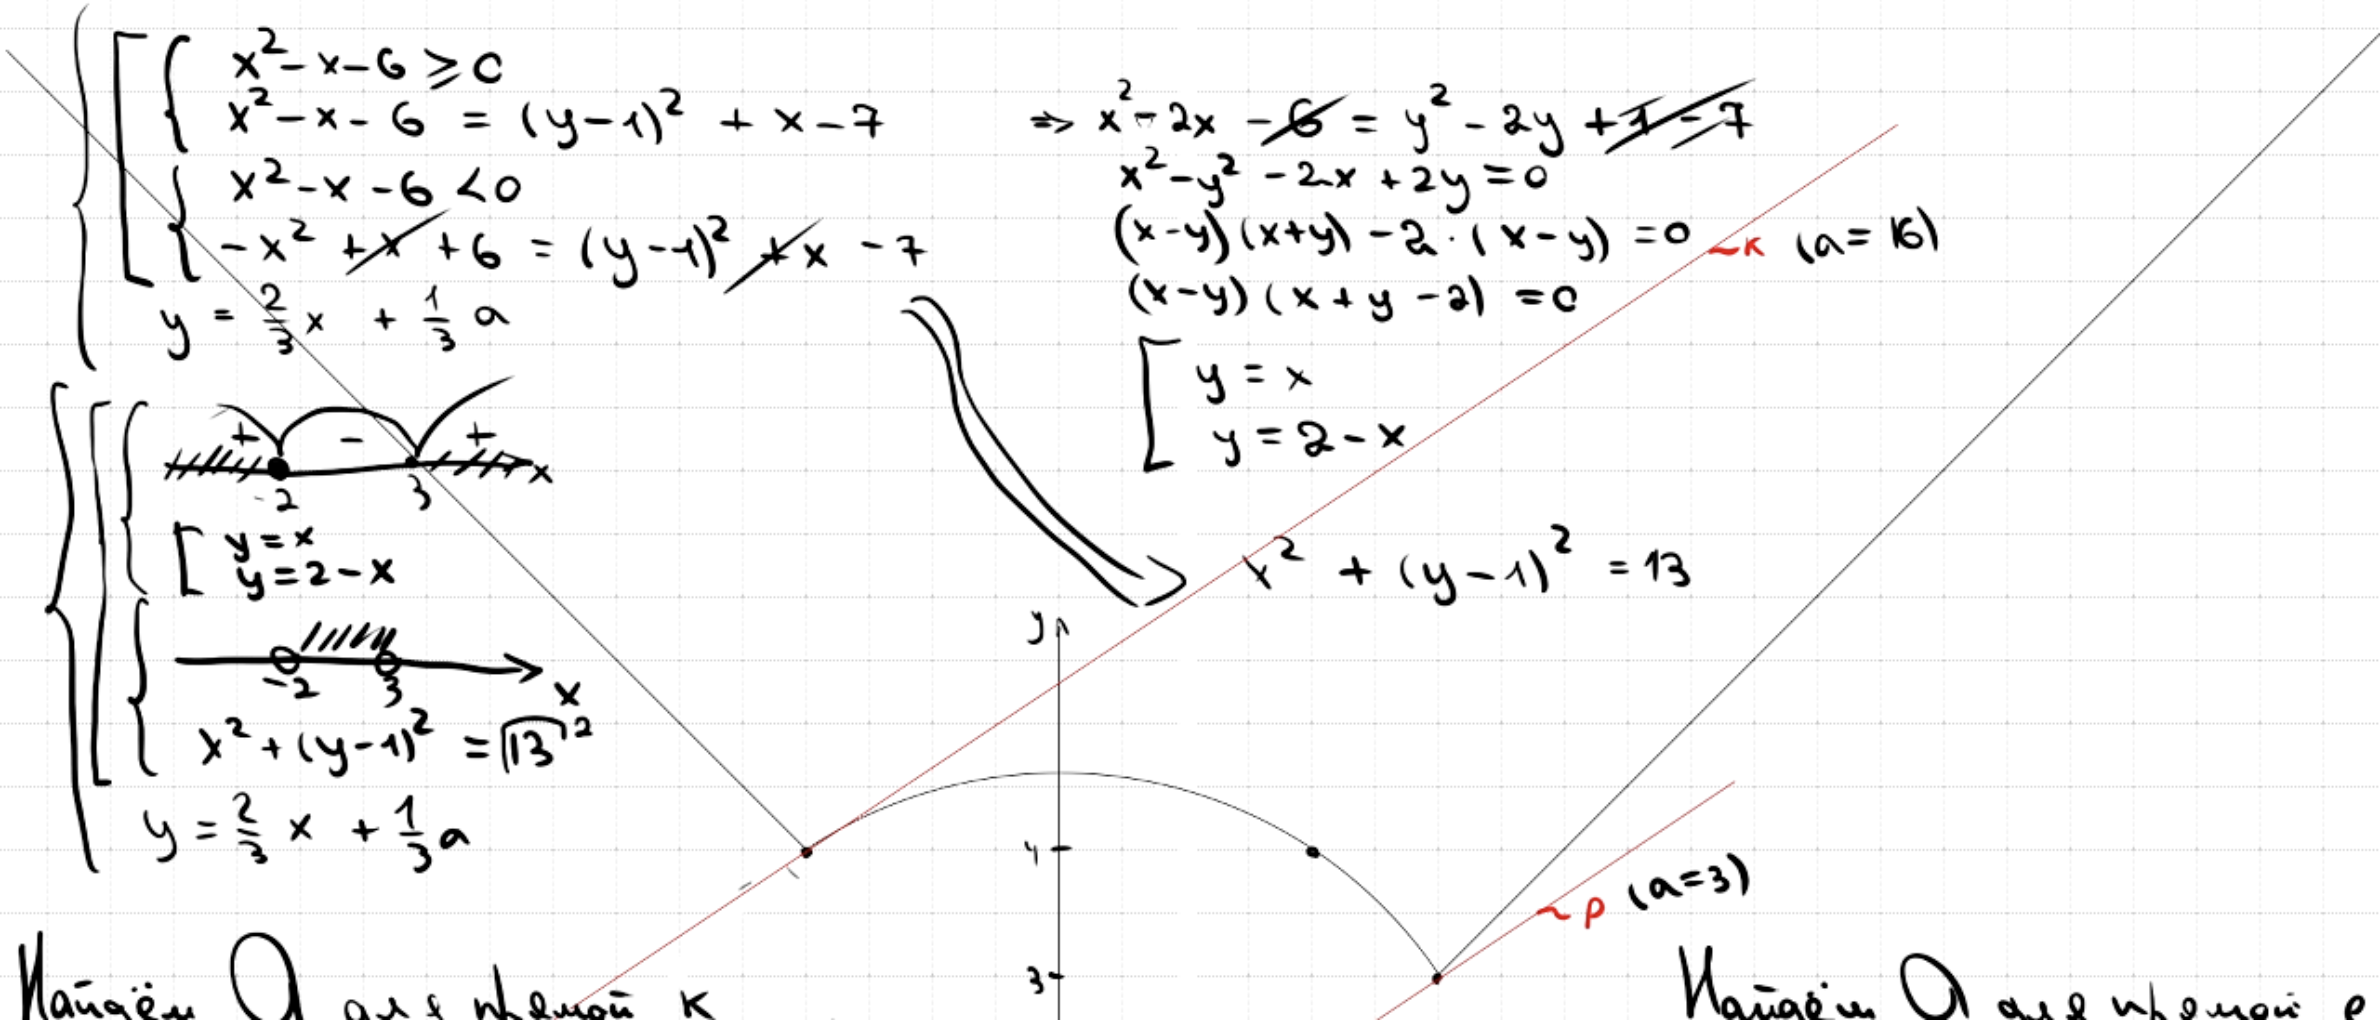 x² - x - 6 ⩾ 0
x² - x - 6 = (y-1)² + x - 7
x² - x - 6 < 0
-x² + x + 6 = (y-1)² + x - 7
y = 2/3 x + 1/3 a
⇒ x² - 2x - 6 = y² - 2y + 1 - 7
x² - y² - 2x + 2y = 0
(x-y)(x+y) - 2·(x-y) = 0
(x-y)(x+y-2) = 0
y = x
y = 2 - x
x² + (y-1)² = 13
~к (a = 16)
+ - +
-2 3 x
y = x
y = 2 - x
-2 3 x
x² + (y-1)² = √13²
y = 2/3 x + 1/3 a
y
4
3
~p (a=3)
Найдём a для прямой к
Найдём a для прямой p